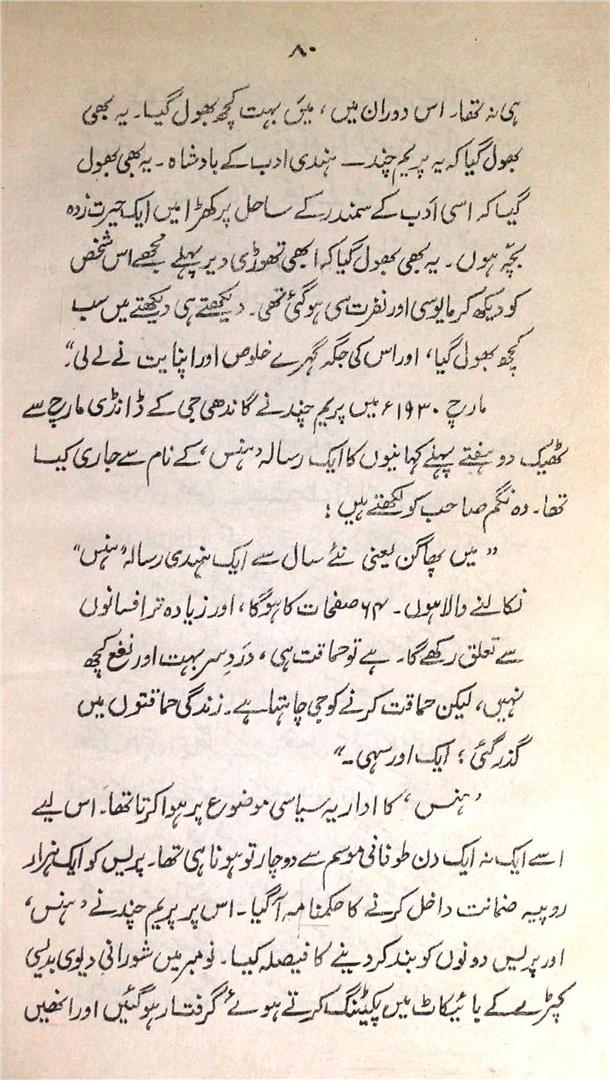 ۸۰
ہی نہ تھا۔ اس دوران میں، میں بہت کچھ بھول گیا۔ یہ بھی
بھول گیا کہ یہ پریم چند — ہندی ادب کے بادشاہ۔ یہ بھی بھول
گیا کہ اسی ادب کے سمندر کے ساحل پر کھڑا میں ایک حیرت زدہ
بچّہ ہوں۔ یہ بھی بھول گیا کہ ابھی تھوڑی دیر پہلے مجھے اس شخص
کو دیکھ کر مایوسی اور نفرت سی ہو گئی تھی۔ دیکھتے ہی دیکھتے میں سب
کچھ بھول گیا، اور اس کی جگہ گہرے خلوص اور اپنایت نے لے لی۔"
مارچ ۱۹۳۰ء میں پریم چند نے گاندھی جی کے ڈانڈی مارچ سے
ٹھیک دو ہفتے پہلے کہانیوں کا ایک رسالہ 'ہنس' کے نام سے جاری کیا
تھا۔ وہ نگم صاحب کو لکھتے ہیں :
"میں پھاگن یعنی نئے سال سے ایک ہندی رسالہ 'ہنس'
نکالنے والا ہوں۔ ۶۴ صفحات کا ہوگا، اور زیادہ تر افسانوں
سے تعلق رکھے گا۔ ہے تو حماقت ہی، دردِ سر بہت اور نفع کچھ
نہیں، لیکن حماقت کرنے کو جی چاہتا ہے۔ زندگی حماقتوں میں
گذر گئی ؛ ایک اور سہی۔"
'ہنس' کا اداریہ سیاسی موضوع پر ہوا کرتا تھا۔ اس لیے
اسے ایک نہ ایک دن طوفانی موسم سے دوچار تو ہونا ہی تھا۔ پریس کو ایک ہزار
روپیہ ضمانت داخل کرنے کا حکمنامہ آگیا۔ اس پر پریم چند نے 'ہنس'
اور پریس دونوں کو بند کر دینے کا فیصلہ کیا۔ نومبر میں شورانی دیوی بدیسی
کپڑے کے بائیکاٹ میں پکیٹنگ کرتے ہوئے گرفتار ہو گئیں اور انھیں